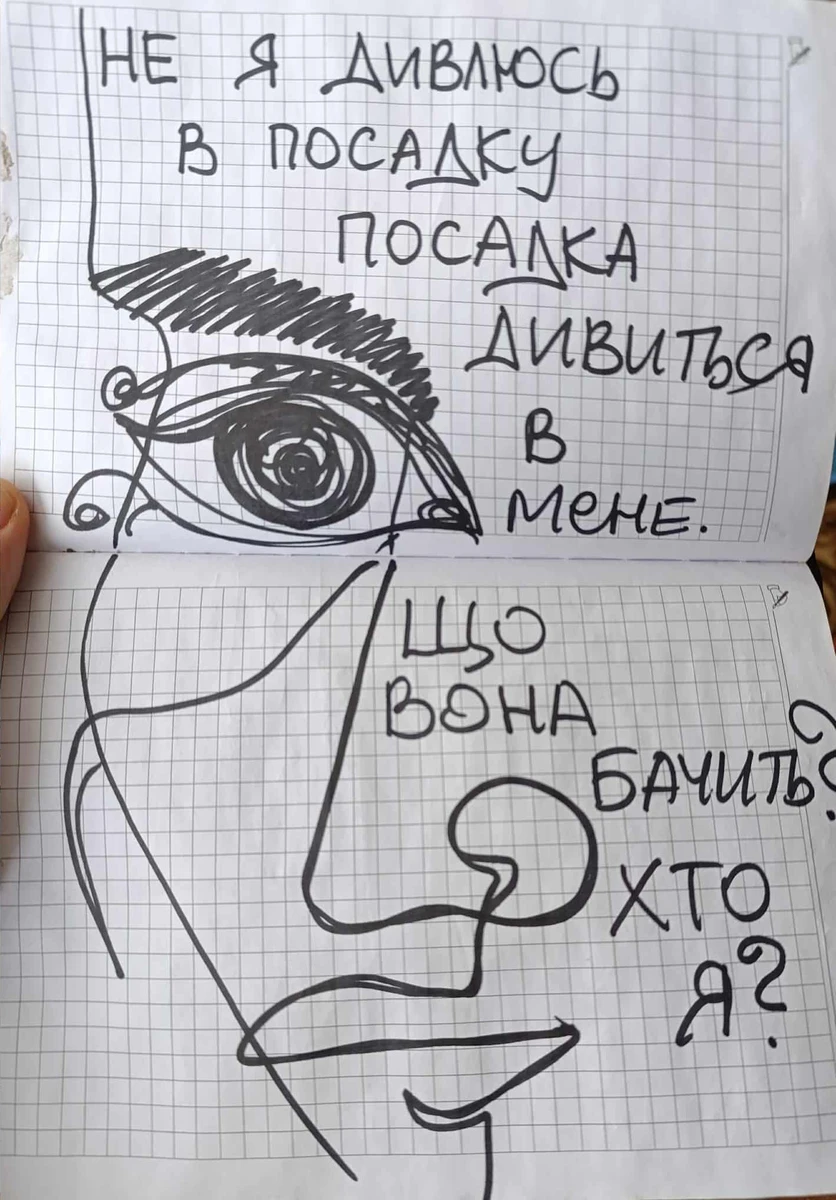 НЕ Я ДИВЛЮСЬ
В ПОСАДКУ
ПОСАДКА
ДИВИТЬСЯ
В
МЕНЕ.
ЩО
ВОНА
БАЧИТЬ?
ХТО
Я?